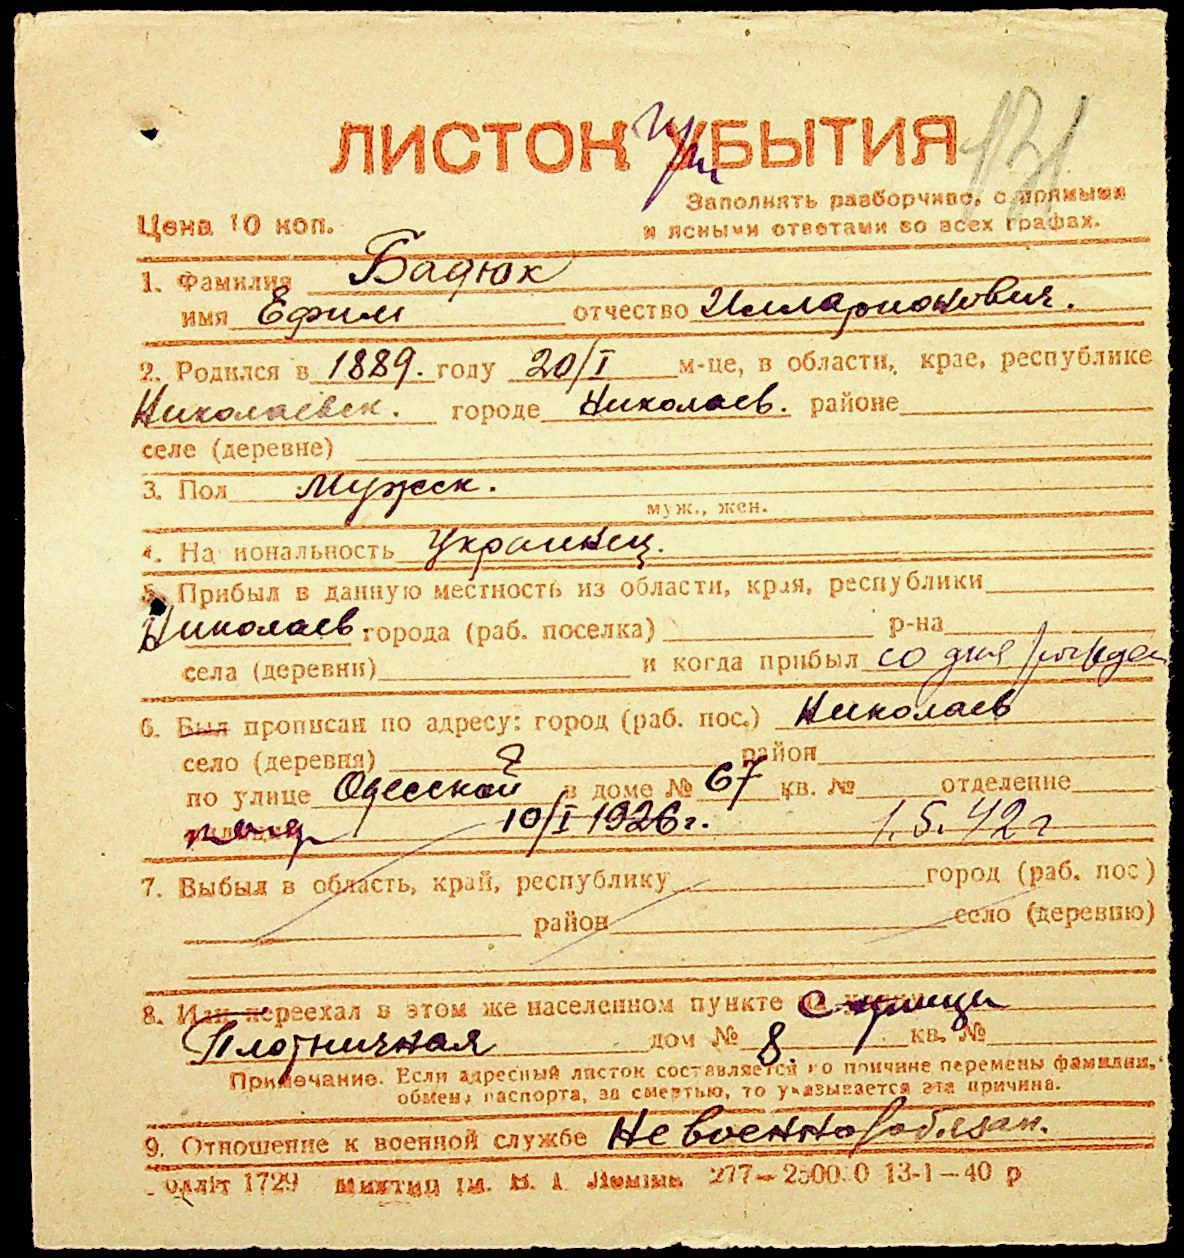 131
ЛИСТОК УБЫТИЯ
При
Заполнять разборчиво, с прямыми
Цена 10 коп.
и ясными ответами во всех графах.
1. Фамилия Бадюк
имя Ефим отчество Илларионович.
2. Родился в 1889. году 20/I м-це, в области, крае, республике
Николаевск. городе Николаев. районе
селе (деревне)
3. Пол Мужск.
муж., жен.
4. Национальность Украинец.
5. Прибыл в данную местность из области, края, республики
Николаев. города (раб. поселка) р-на
села (деревни) и когда прибыл со дня рожден
6. Был прописан по адресу: город (раб. пос.) Николаев
село (деревня) район
по улице Одесской в доме № 67 кв. № отделение
10/I 1926 г. 1.5.42 г
7. Выбыл в область, край, республику город (раб. пос)
район село (деревню)
8. Или переехал в этом же населенном пункте с улицы
Плотничная дом № 8. кв. №
Примечание. Если адресный листок составляется по причине перемены фамилии,
обмена паспорта, за смертью, то указывается эта причина.
9. Отношение к военной службе Не военнообязан.
1729 277— 13-1—40 р